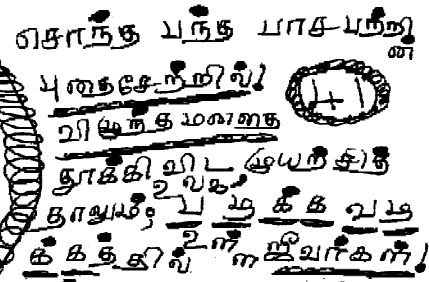 சொந்த பந்த பாச பற்றின்
புதைசேற்றில்!
1+1
விழுந்த மனதை
தூக்கி விட முயற்சித்
தாலும், உலக பழக்க வழ
க்கத்தில் உள்ள ஜீவர்கள்!